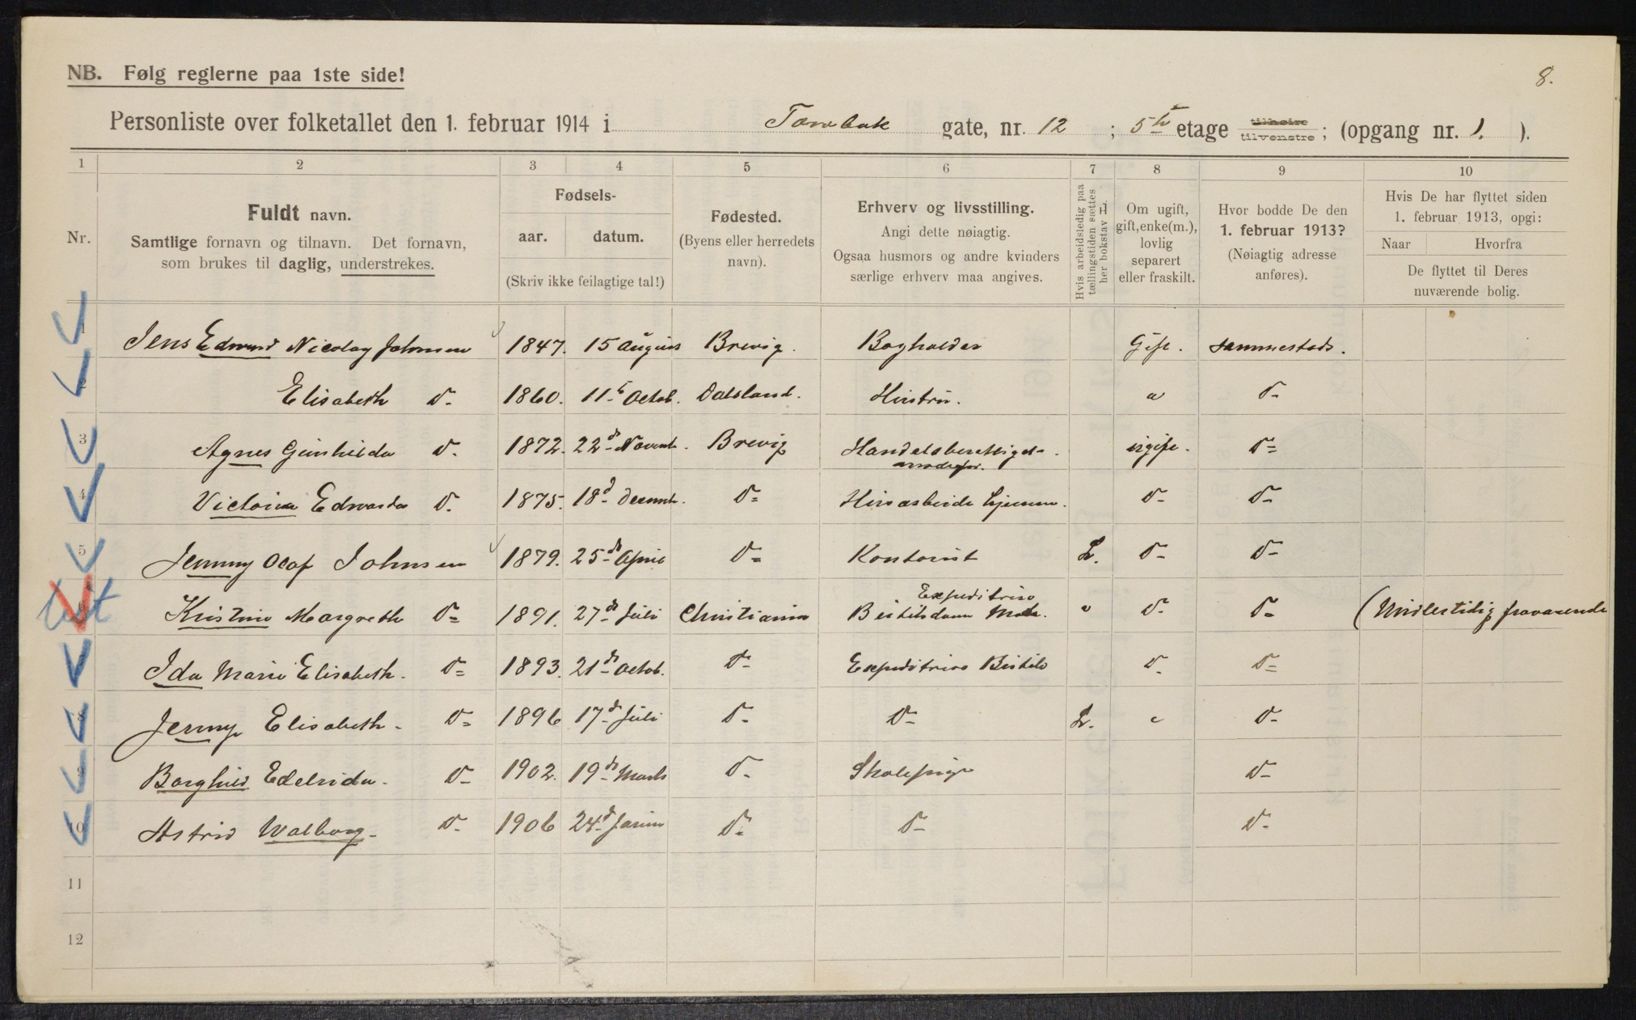 NB. Følg reglerne paa 1ste side!
8.
Personliste over folketallet den 1. februar 1914 i gate, nr. 12 ; 5te etage tilhøire tilvenstre ; (opgang nr. 1. ).
1 2 3 4 5 6 7 8 9 10
Nr.
Fuldt navn.
Samtlige fornavn og tilnavn. Det fornavn,
som brukes til daglig, understrekes.
Fødsels-
aar. datum.
(Skriv ikke feilagtige tal!)
Fødested.
(Byens eller herredets
navn).
Erhverv og livsstilling.
Angi dette nøiagtig.
Ogsaa husmors og andre kvinders
særlige erhverv maa angives.
Hvis arbeidsledig paa
tællingstiden sættes
her bokstav L
Om ugift,
gift, enke(m.),
lovlig
separert
eller fraskilt.
Hvor bodde De den
1. februar 1913?
(Nøiagtig adresse
anføres).
Hvis De har flyttet siden
1. februar 1913, opgi:
Naar Hvorfra
De flyttet til Deres
nuværende bolig.
1 Jens Edmund Nicolay Johnsen 1847. 15 August Brevig. Bogholder Gift. sammesteds.
2 Elisabeth D. 1860. 11te Octob. Dalsland. Hustru. " D-
3 Agnes Gunhilda D. 1872. 22d Novemb. Brevig ugift. D=
4 Victoria Edvarda D. 1875. 18d Decemb. D= Husarbeide hjemme. D- D-
5 Jemmy Olaf Johnsen 1879. 25de April D= Kontorist L. D- D-
6 Kristine Margreth D= 1891. 27de Juli Christiania Expeditrice " D- D- (Midlertidig fraværende
7 Ida Marie Elisabeth. D= 1893. 21de Octob. D- Expeditrice D. D=
8 Jenny Elisabeth - D= 1896 17de Juli D- D- L. " D-
9 Borghild Edelrida. D- 1902. 19de Marts D- Skolepige D-
10 Astrid Walborg. D- 1906 24d Januar D- D- D-
11
12